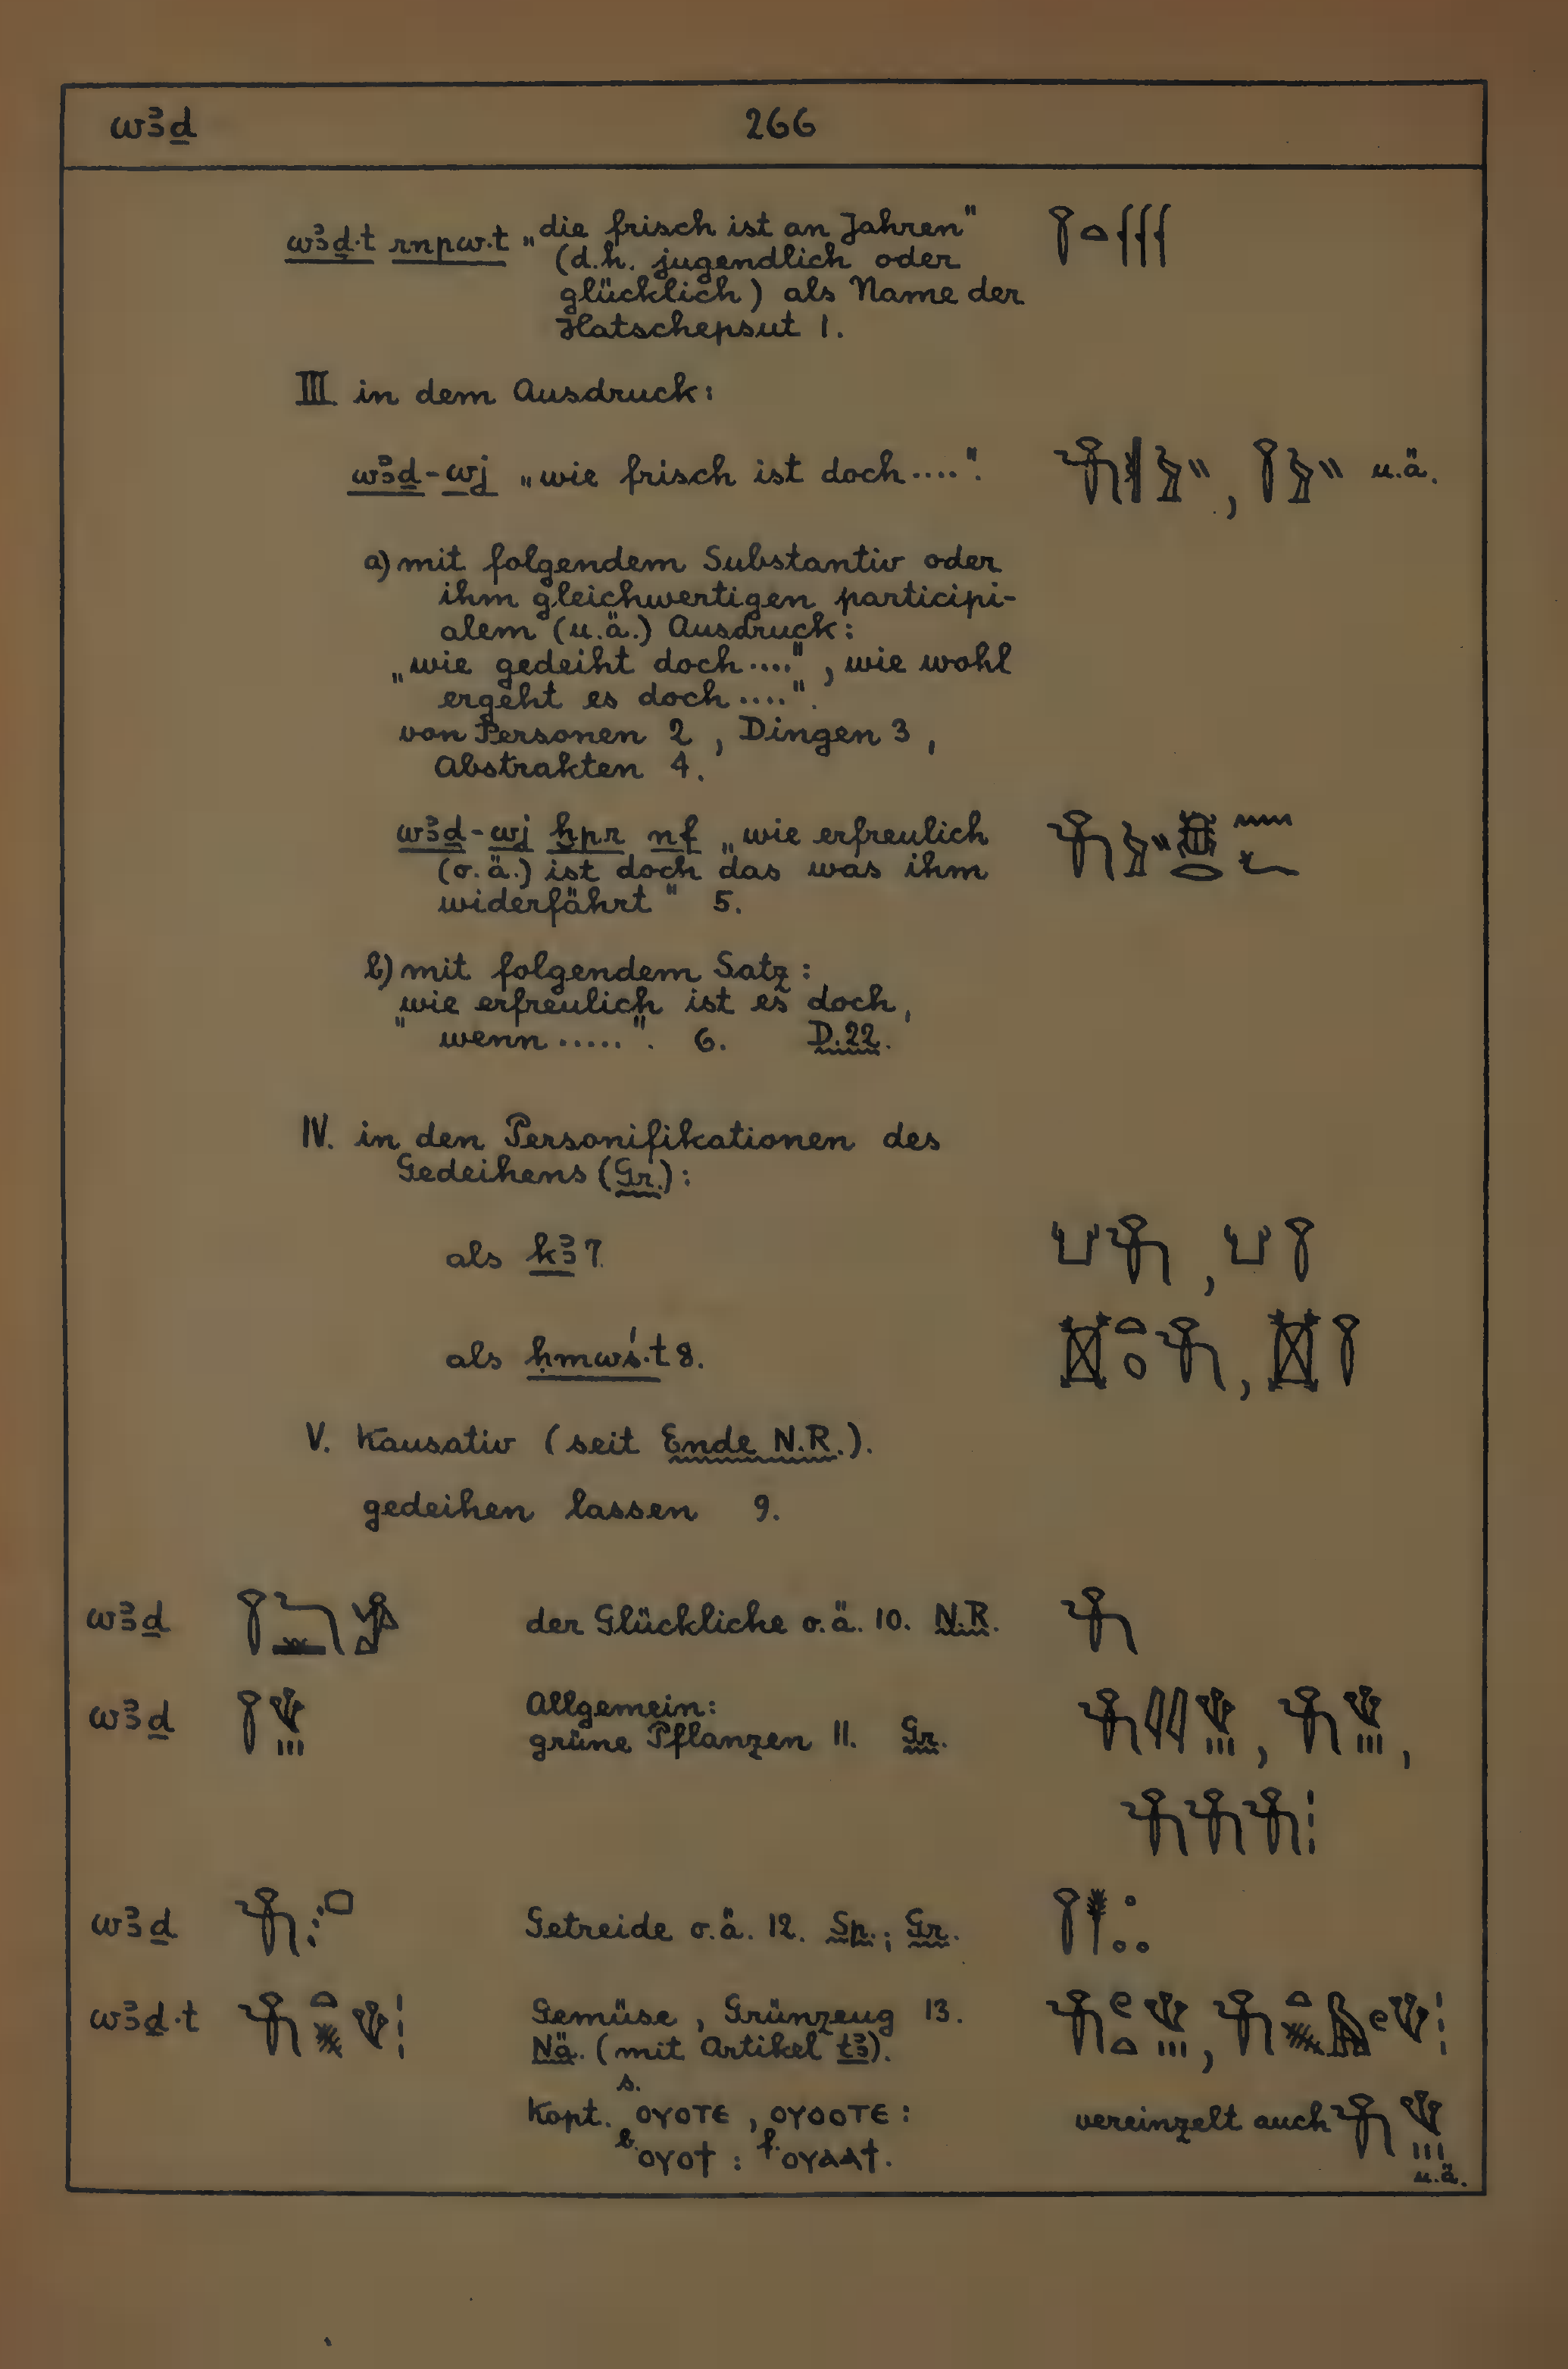 wꜣḏ 266
wꜣḏ·t rnpw·t „die frisch ist an Jahren"
(d.h. jugendlich oder
glücklich) als Name der
Hatschepsut 1.
III in dem Ausdruck:
wꜣḏ-wj „wie frisch ist doch....". u.ä.
a) mit folgendem Substantiv oder
ihm gleichwertigen participi-
alem (u.ä.) Ausdruck:
„wie gedeiht doch....", wie wohl
ergeht es doch....".
von Personen 2, Dingen 3,
Abstrakten 4.
wꜣḏ-wj ḫpr nf „wie erfreulich
(o.ä.) ist doch das was ihm
widerfährt" 5.
b) mit folgendem Satz:
„wie erfreulich ist es doch,
wenn.....". 6. D.22.
IV. in den Personifikationen des
Gedeihens (Gr.):
als kꜣ 7.
als ḥmwś·t 8.
V. Kausativ (seit Ende N.R.).
gedeihen lassen 9.
wꜣḏ der Glückliche o.ä. 10. N.R.
wꜣḏ Allgemein:
grüne Pflanzen 11. Gr.
wꜣḏ Getreide o.ä. 12. Sp.; Gr.
wꜣḏ·t Gemüse, Grünzeug 13.
Nä. (mit Artikel tꜣ).
Kopt. s. ⲟⲩⲟⲧⲉ, ⲟⲩⲟⲟⲧⲉ: vereinzelt auch
b. ⲟⲩⲟϯ: f. ⲟⲩⲁⲁϯ. u.ä.